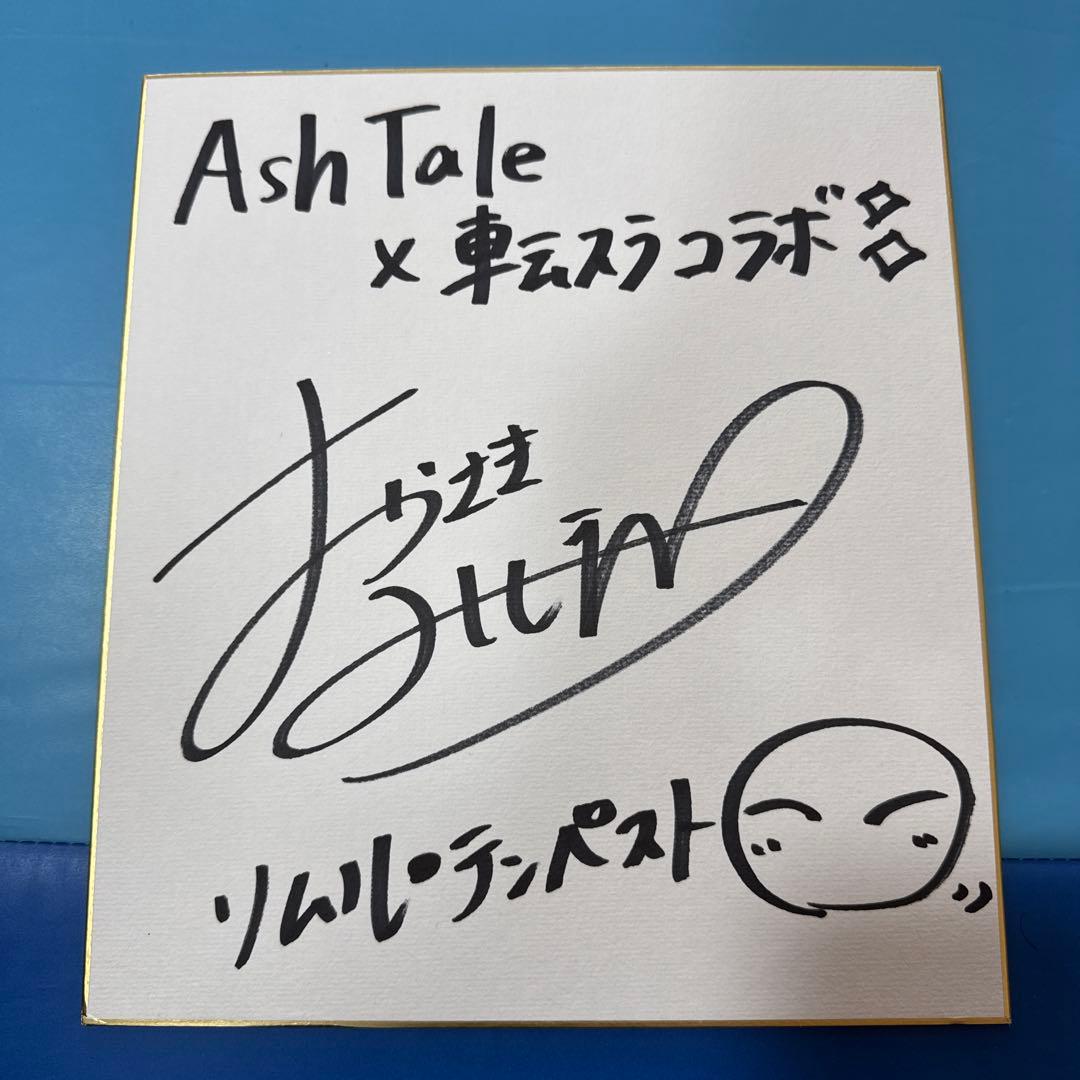 AshTale
×転スラコラボ
おかさき
リムル・テンペスト